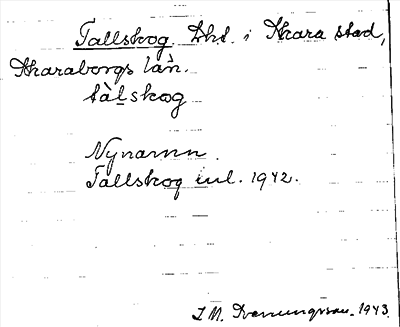 Tallskog. Lht. i Skara stad,
Skaraborgs län.
tàlskog
Nynamn.
Tallskog enl. 1942.
I. M. 1943.